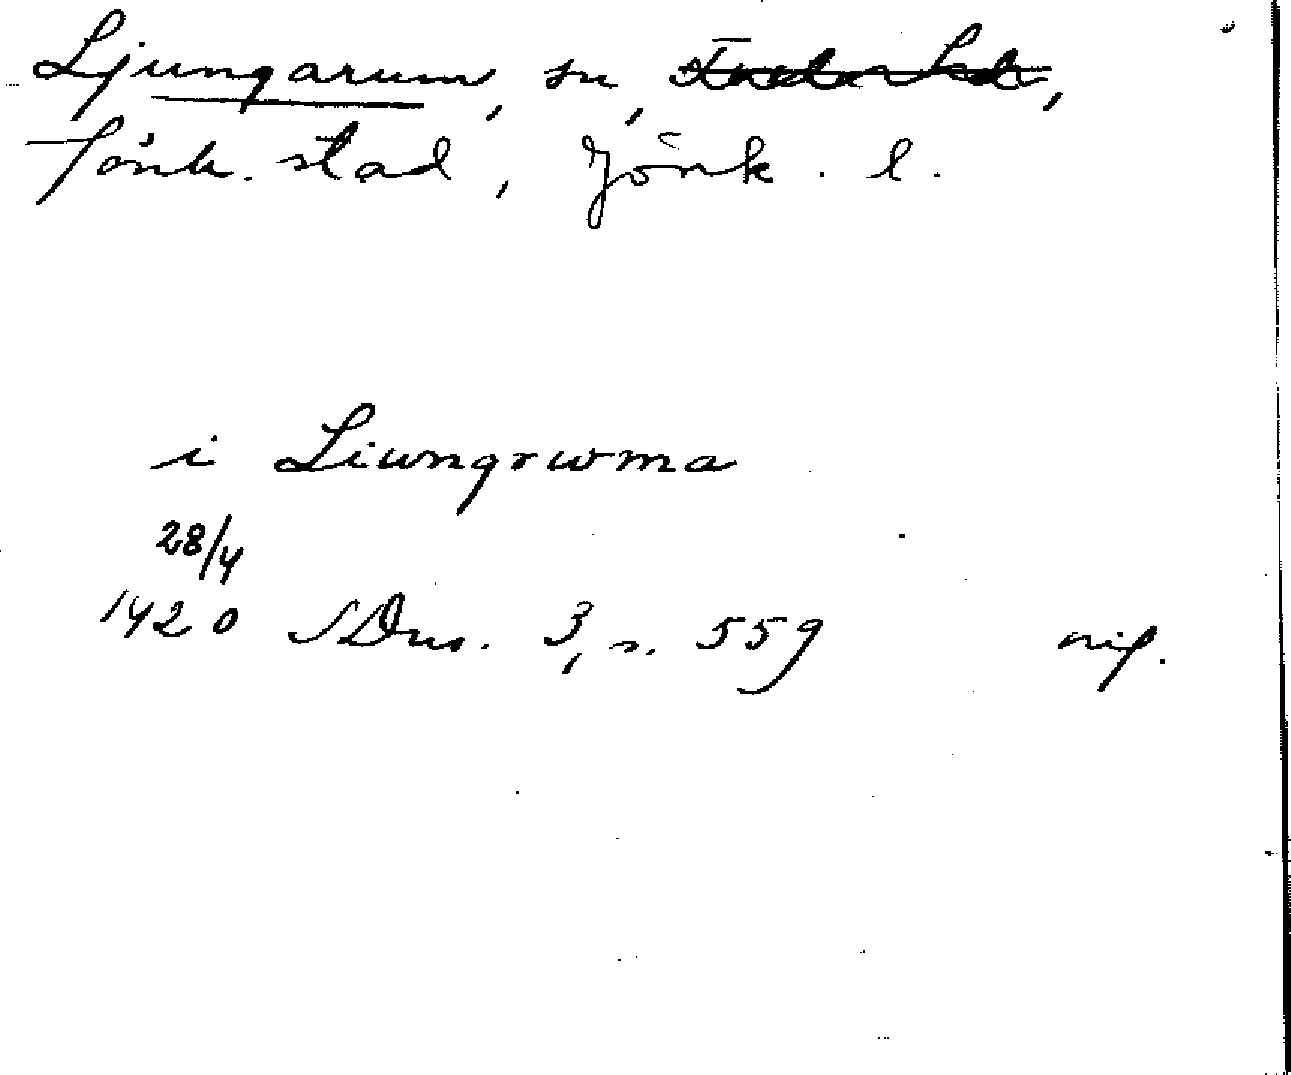 Ljungarum, sn,
Jönk. stad, Jönk. l.
i Liwngrwma
28/4
1420 SDns. 3, s. 559 nif.